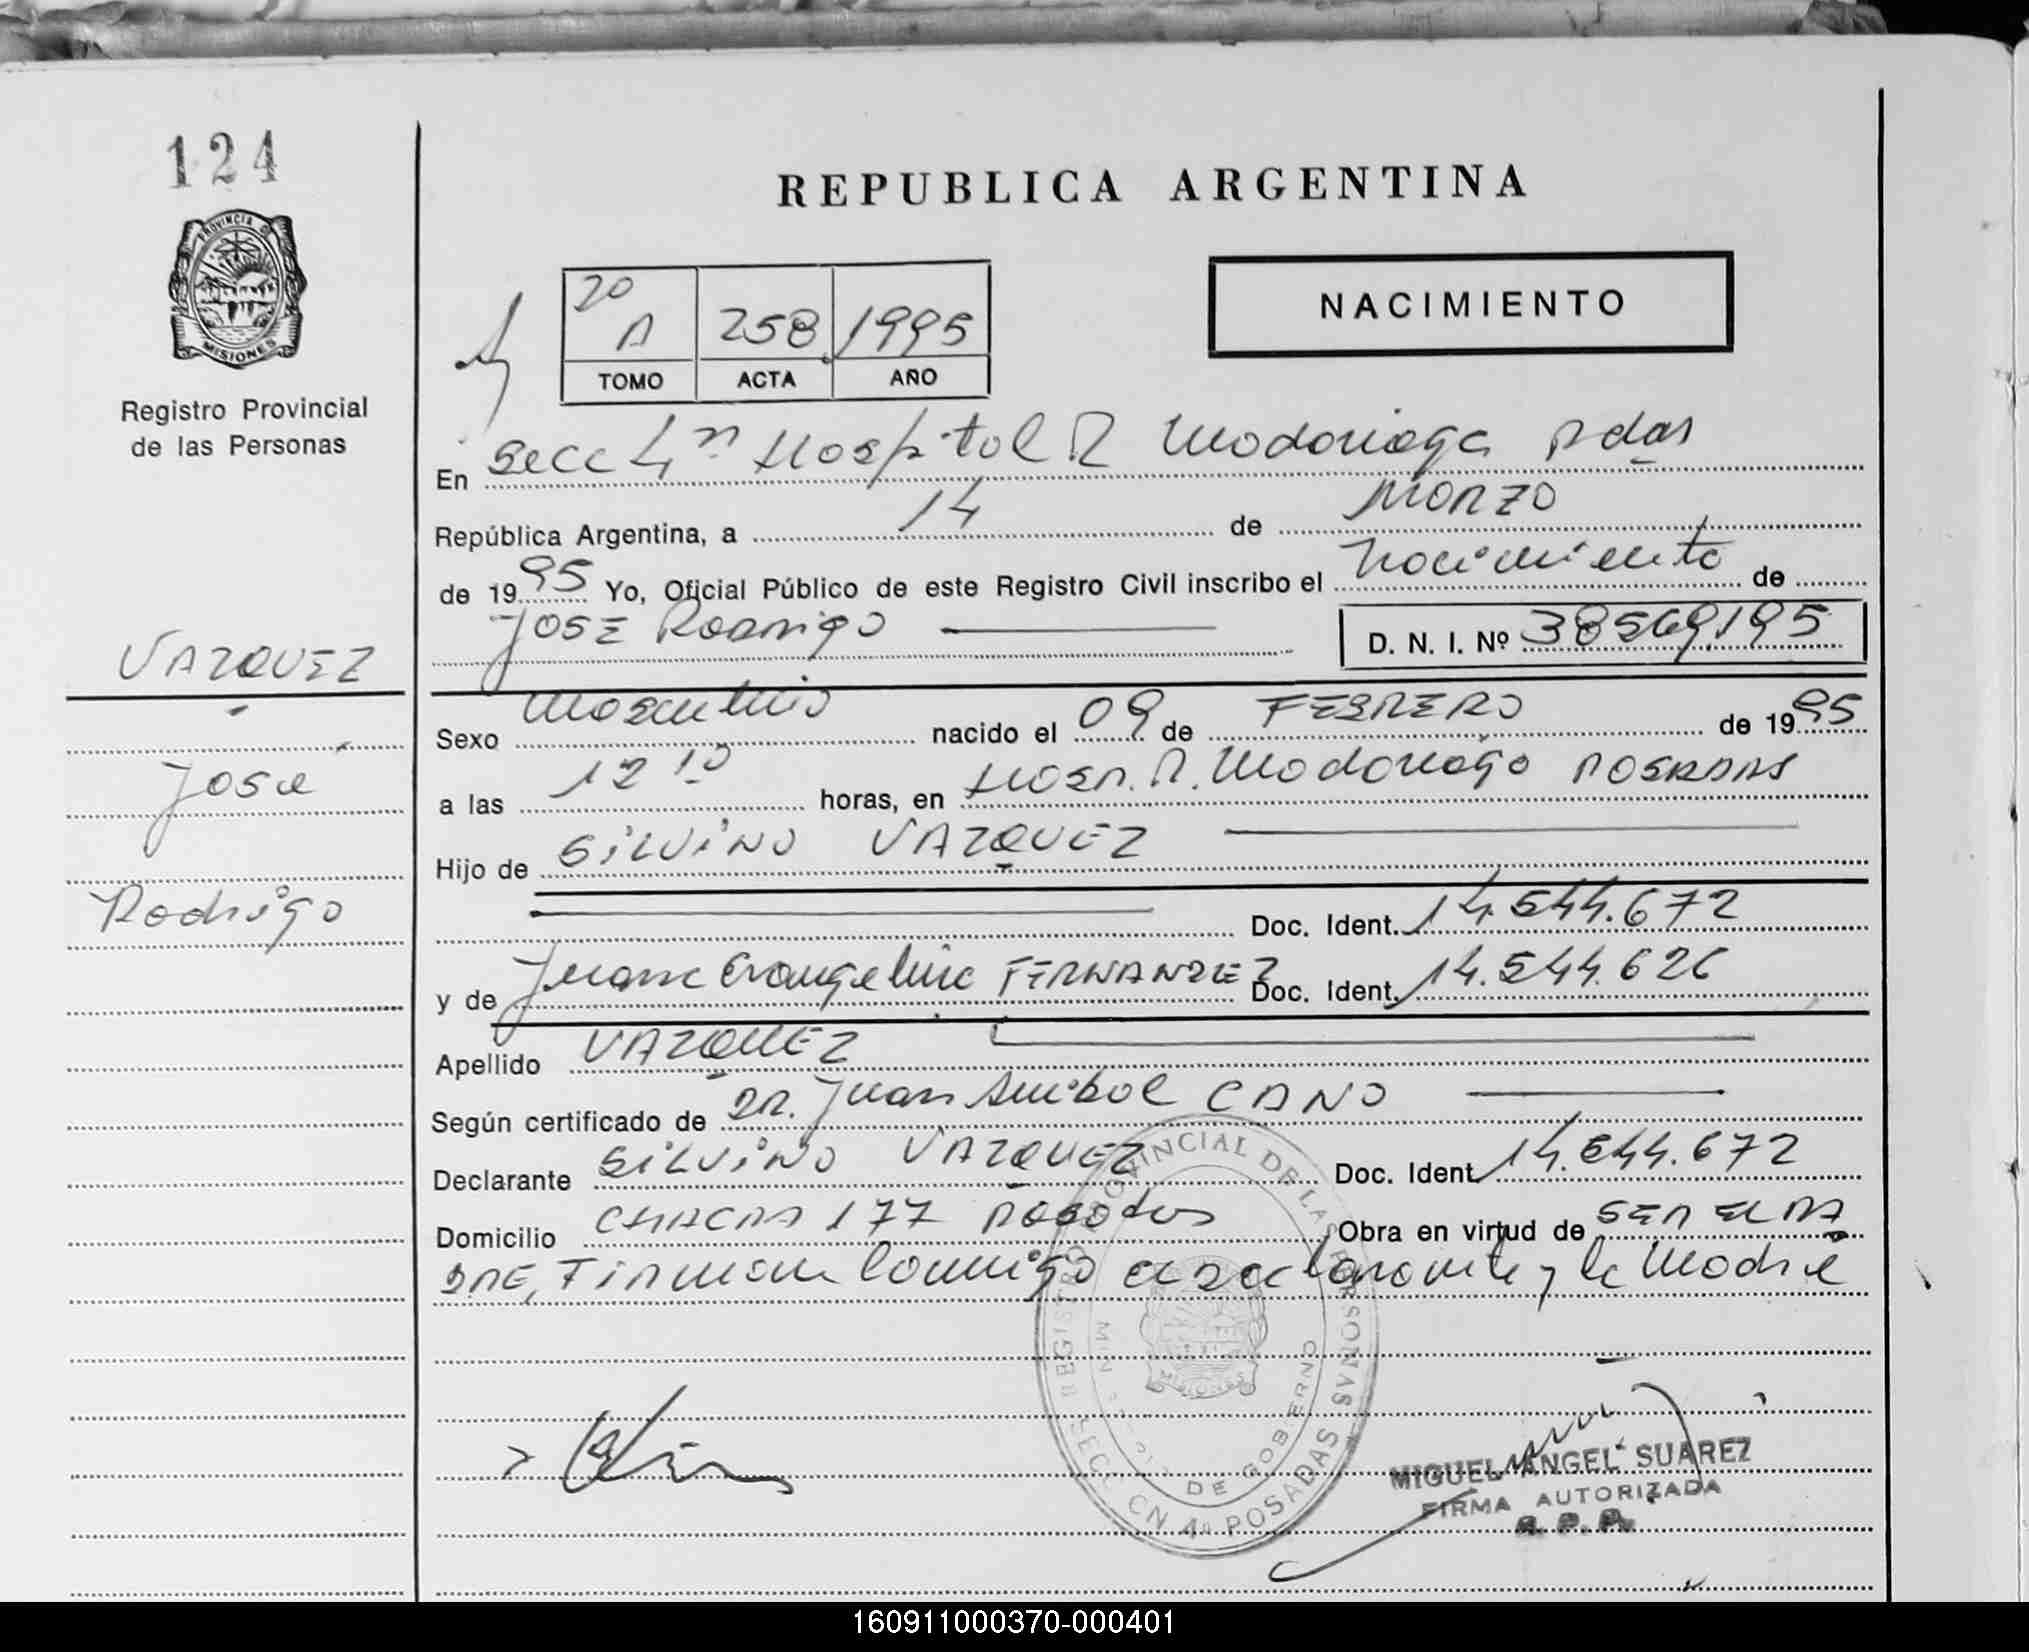 124
REPUBLICA ARGENTINA
PROVINCIA DE
MISIONES
Registro Provincial
de las Personas
NACIMIENTO
20
A 258 1995
TOMO ACTA AÑO
En Secc 4ta Hospital R Madariaga Pdas
República Argentina, a 14 de Marzo
de 1995 Yo, Oficial Público de este Registro Civil inscribo el Nacimiento de
JOSE Rodrigo D. N. I. Nº 38569195
VAZQUEZ
José
Rodrigo
Sexo Masculino nacido el 09 de FEBRERO de 1995
a las 12 10 horas, en Hosp. R. Madariaga POSADAS
Hijo de SILVINO VAZQUEZ
Doc. Ident. 14.544.672
y de Juana Evangelina FERNANDEZ Doc. Ident. 14.544.626
Apellido VAZQUEZ
Según certificado de DR. Juan Anibal CANO
Declarante SILVINO VAZQUEZ Doc. Ident 14.544.672
Domicilio CHACRA 177 Posadas Obra en virtud de SER EL PA
DRE, Firman conmigo el declarante y la Madre
REGISTRO PROVINCIAL DE LAS PERSONAS
DE GOBIERNO
MISIONES
SECCION 4a POSADAS
MIGUEL ANGEL SUAREZ
FIRMA AUTORIZADA
R. P. P.
160911000370-000401